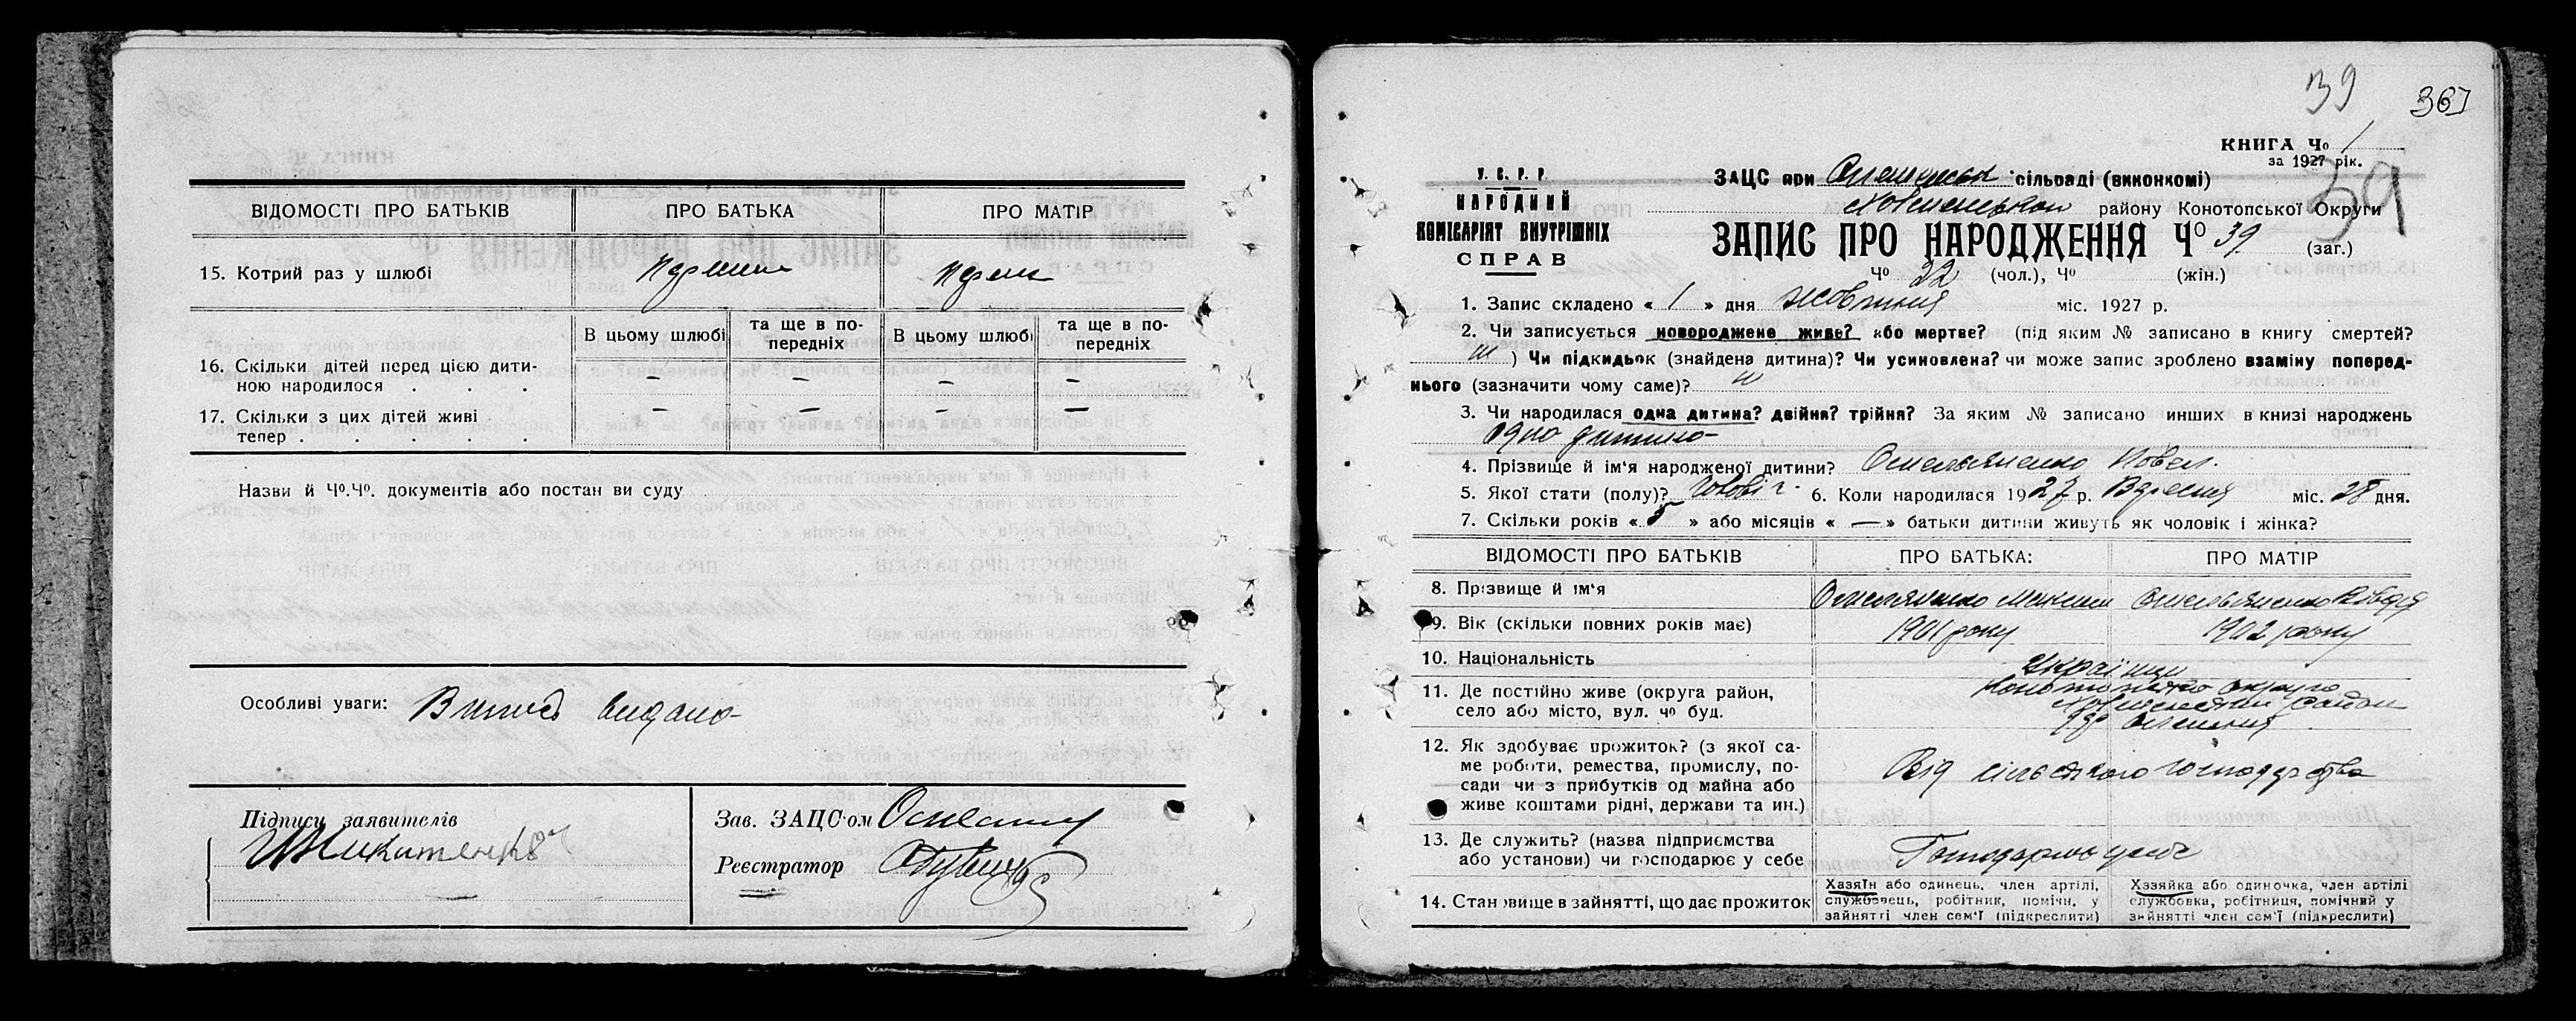 ВІДОМОСТІ ПРО БАТЬКІВ ПРО БАТЬКА ПРО МАТІР
15. Котрий раз у шлюбі
В цьому шлюбі та ще в по-передніх В цьому шлюбі та ще в по-передніх
16. Скільки дітей перед цією дити-
ною народилося . . . — — — —
17. Скільки з цих дітей живі
тепер . . . . . — — — —
Назви й Чо.Чо. документів або постанови суду
Особливі уваги: Випись видано
Підписи заявителів
Зав. ЗАЦС'ом
Реєстратор
39 367
КНИГА Чо 1
за 1927 рік.
39
У. С. Р. Р.
НАРОДНИЙ
КОМІСАРІЯТ ВНУТРІШНІХ
СПРАВ
ЗАЦС при сільраді (виконкомі)
району Конотопської Округи
ЗАПИС ПРО НАРОДЖЕННЯ Чо 39 (заг.)
Чо 22 (чол.), Чо (жін.)
1. Запис складено « 1 » дня жовтня міс. 1927 р.
2. Чи записується новороджене живе? або мертве? (під яким № записано в книгу смертей?
) Чи підкидьок (знайдена дитина)? Чи усиновлена? чи може запис зроблено взаміну поперед-
нього (зазначити чому саме)?
3. Чи народилася одна дитина? двійня? трійня? За яким № записано инших в книзі народжень
одна дитина
4. Прізвище й ім'я народженої дитини? Омельяненко Павел.
5. Якої стати (полу)? 6. Коли народилася 1927 р. Вересня міс. 28 дня.
7. Скільки років « 5 » або місяців « — » батьки дитини живуть як чоловік і жінка?
ВІДОМОСТІ ПРО БАТЬКІВ ПРО БАТЬКА: ПРО МАТІР
8. Прізвище й ім'я Омеляненко Максим Омельяненко
9. Вік (скільки повних років має) 1901 року 1902 року
10. Національність Українці
11. Де постійно живе (округа район,
село або місто, вул. чо буд.
12. Як здобуває прожиток? (з якої са-
ме роботи, ремества, промислу, по-
сади чи з прибутків од майна або
живе коштами рідні, держави та ин.)
Від сільського господарства
13. Де служить? (назва підприємства
або установи) чи господарює у себе
Господарює у себе
14. Становище в зайнятті, що дає прожиток
Хазяїн або одинець, член артілі,
службовець, робітник, помічн. у
зайнятті член сем'ї (підкреслити)
Хазяйка або одиночка, член артілі
службовка, робітниця, помічний у
зайнятті член сем'ї (підкреслити)